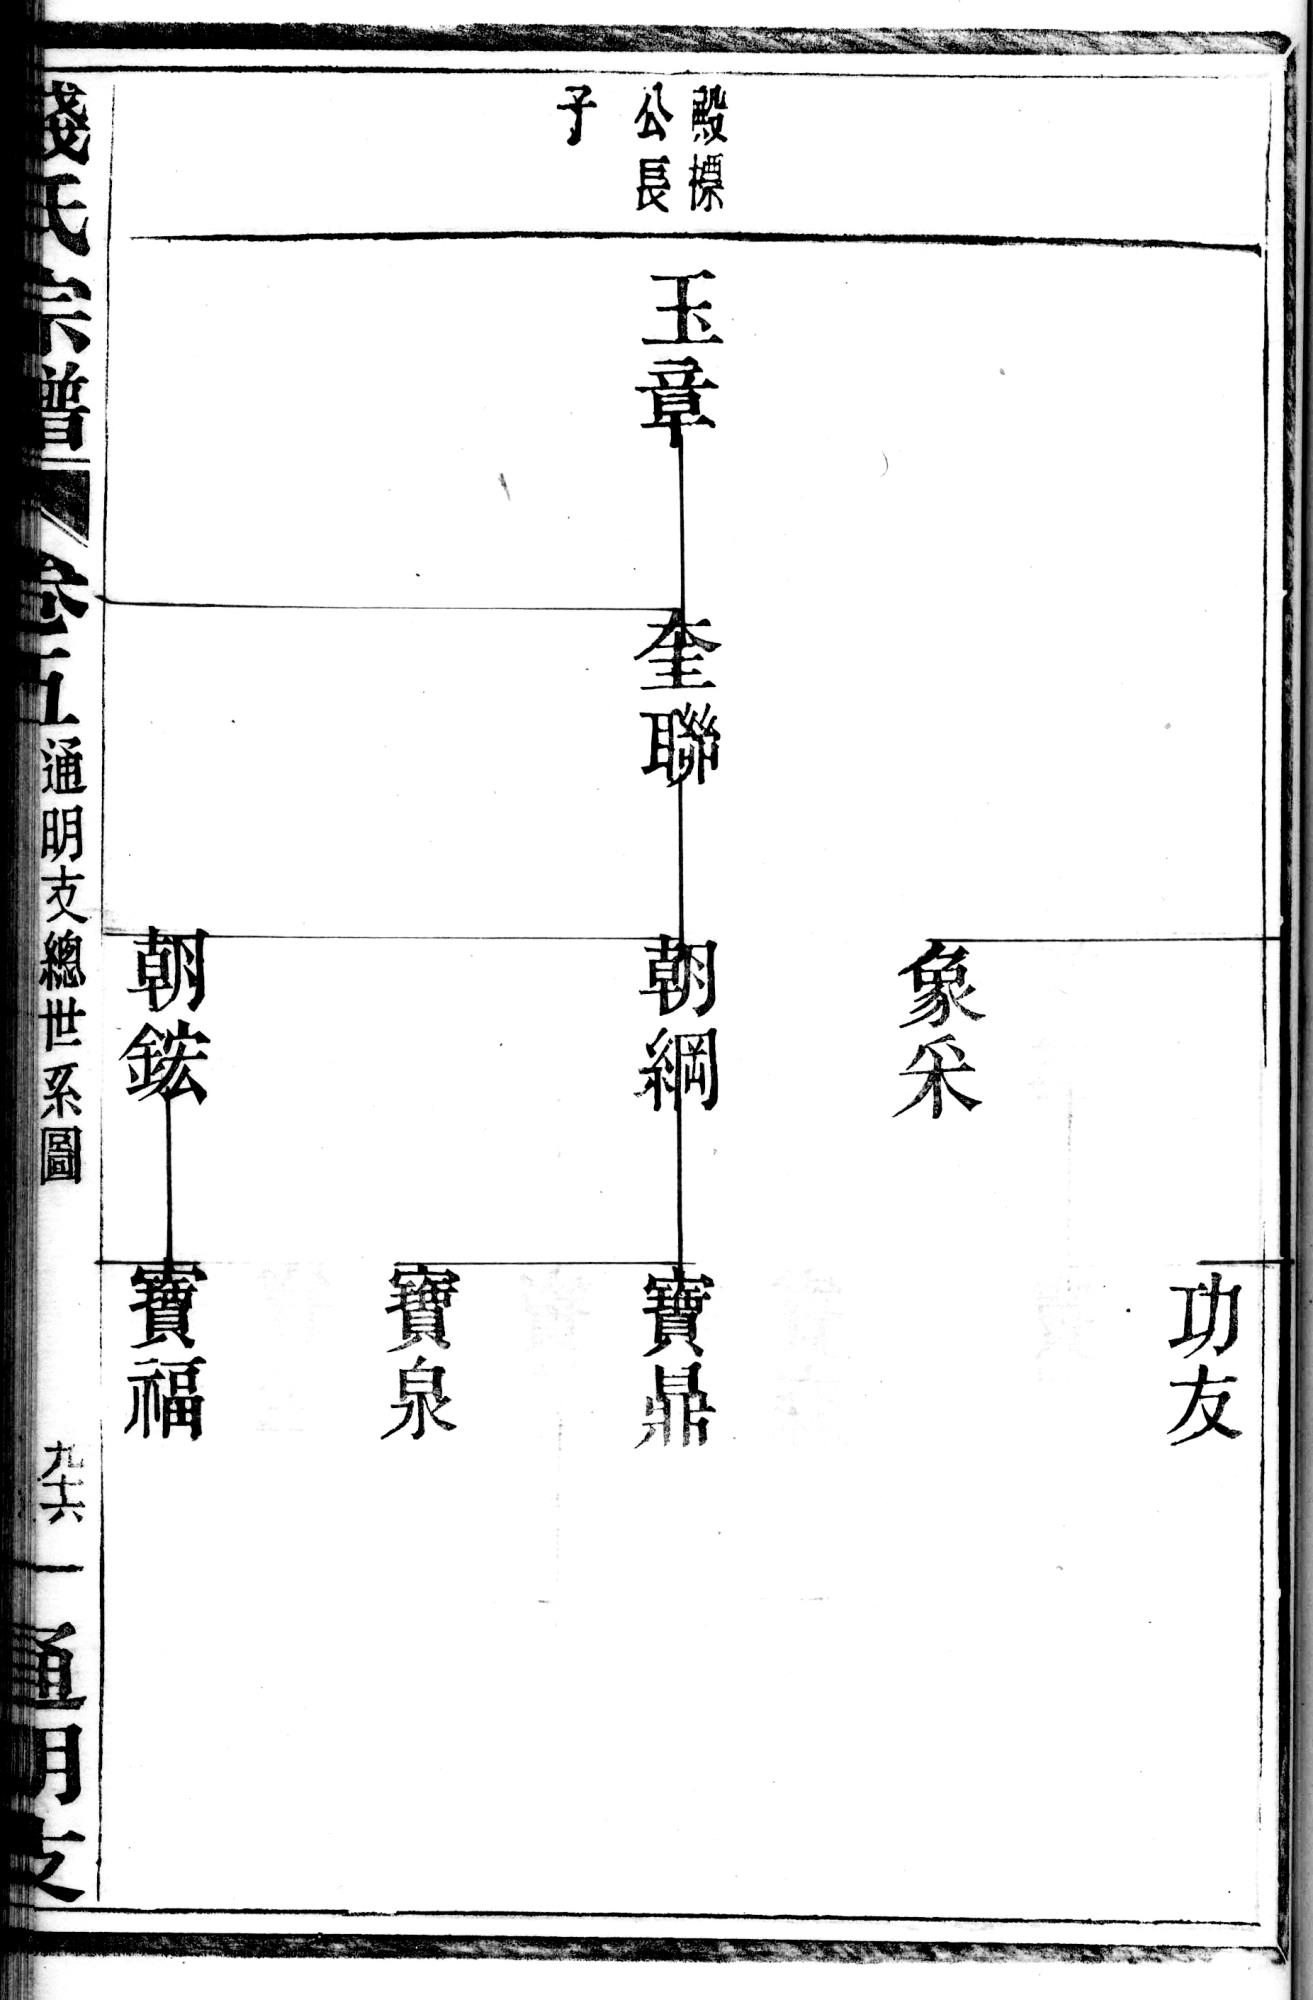 殿標
公長
子
玉章
奎聯
象采
朝綱
朝鋐
功友
寶鼎
寶泉
寶福
錢氏宗譜
卷五
通明支總世系圖
九十六
一
通明支